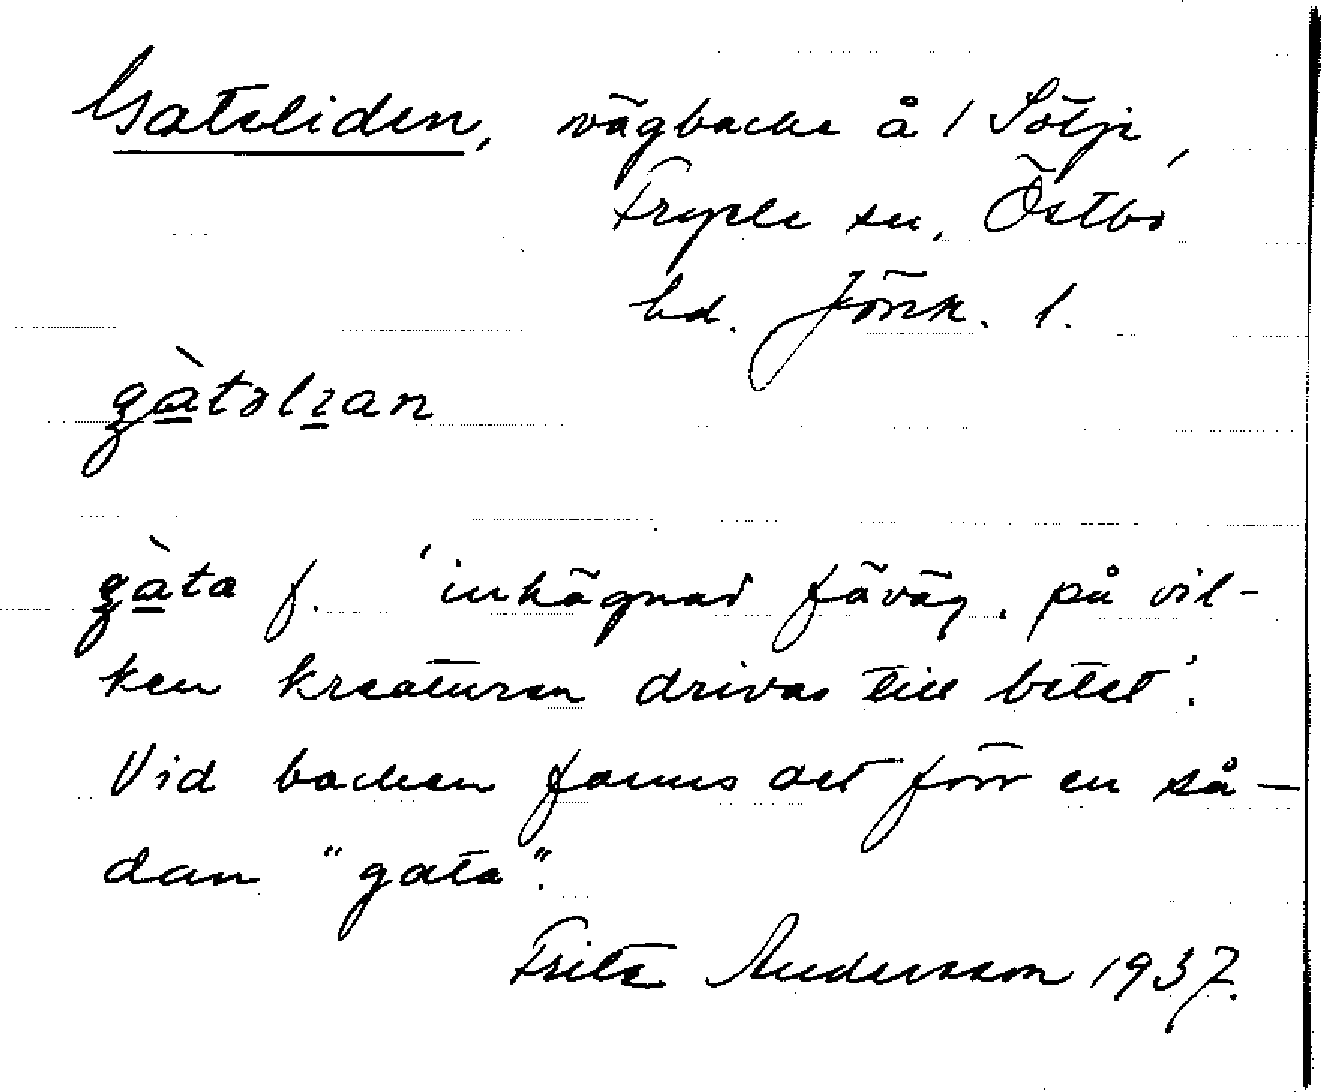 Gateliden, vägbacke å 1 Sölje,
Fryele sn, Östbo
hd. Jönk. l.
gàtəlian
gàta f. 'inhägnad fäväg, på vil-
ken kreaturen drivas till betet'.
Vid backen fanns det förr en så-
dan "gata".
Fritz Andersson 1937.